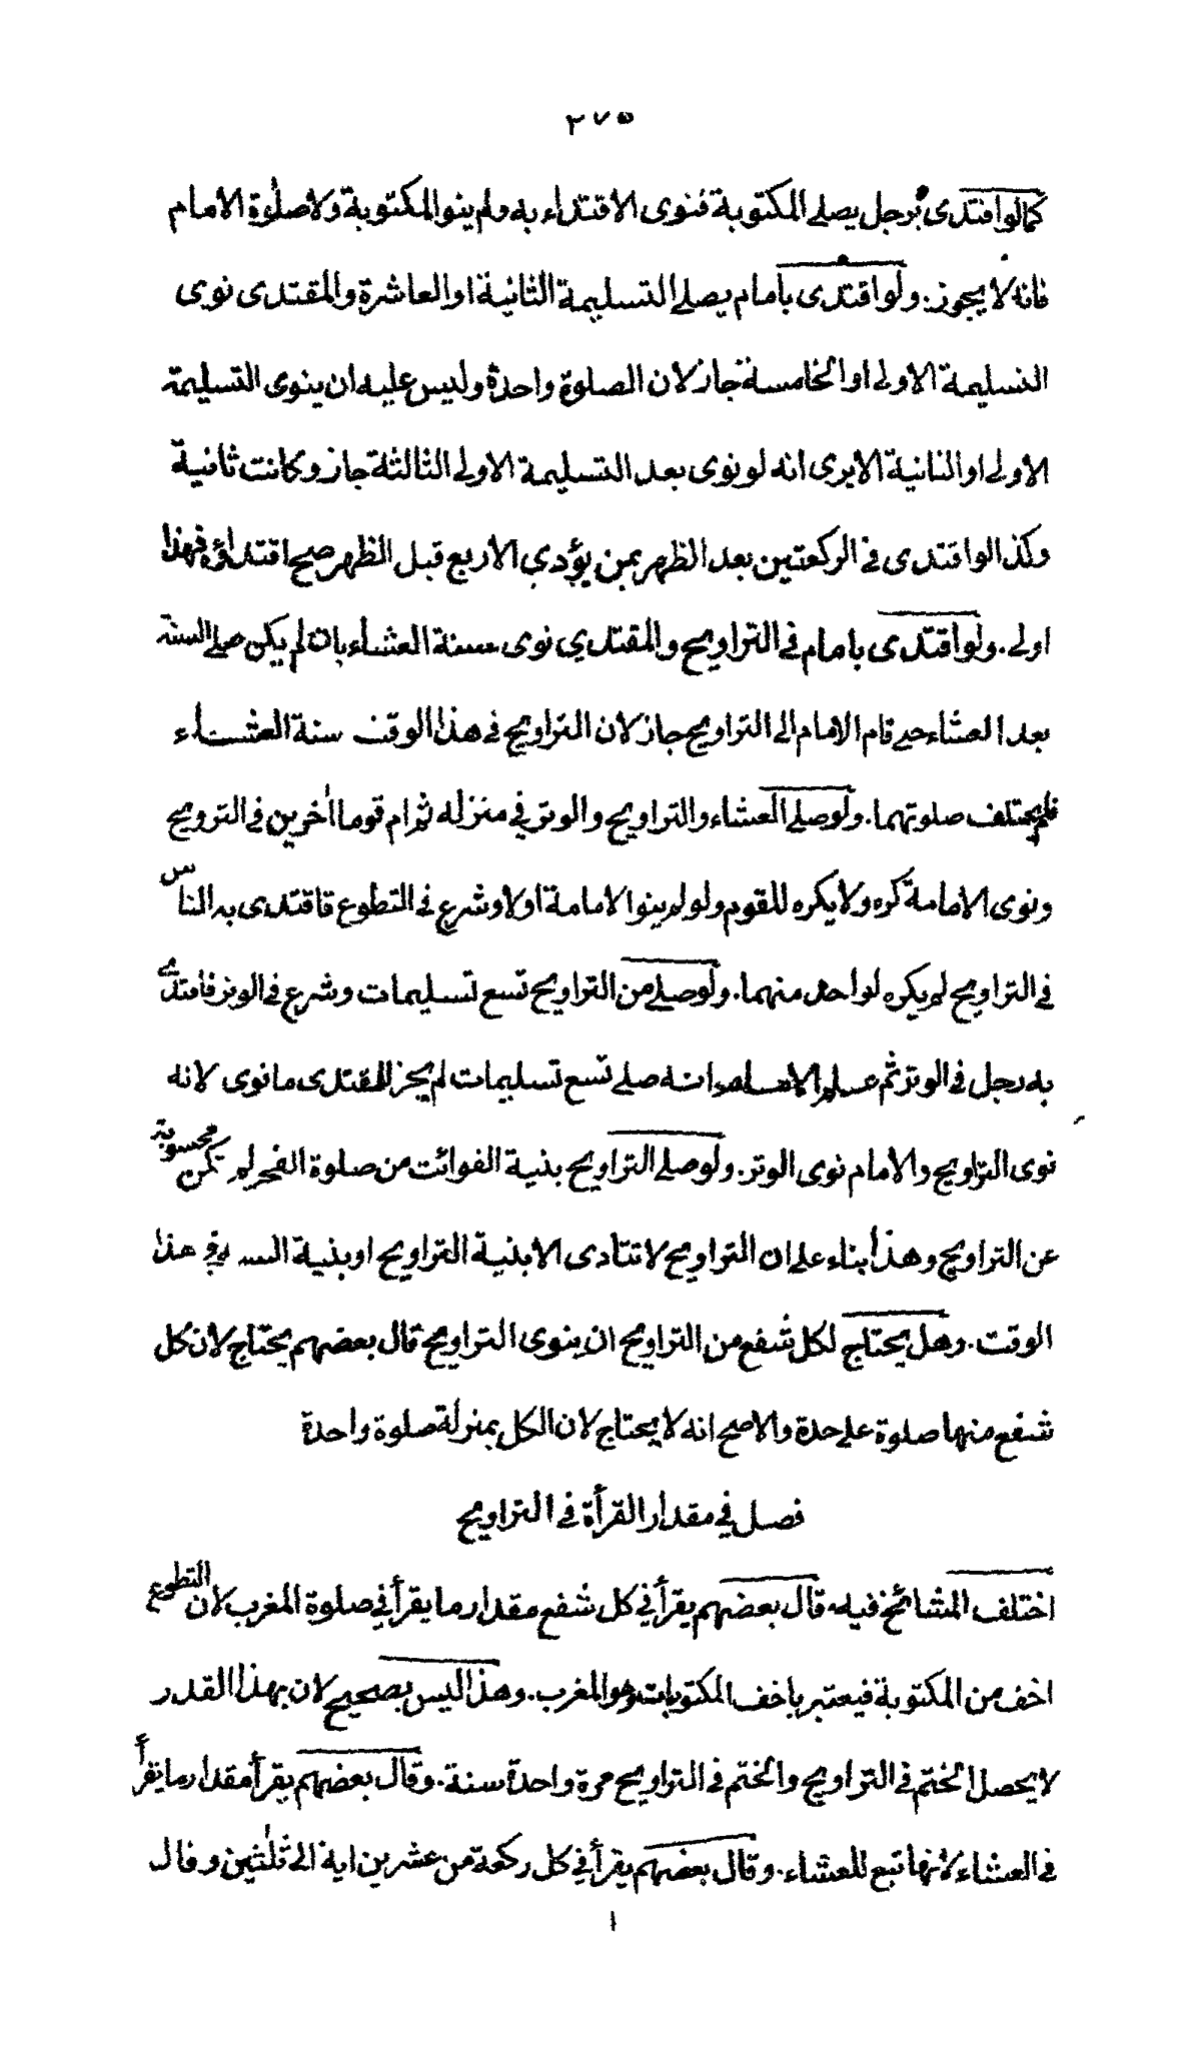 ٢٧٥
كما لو اقتدى برجل يصلے المكتوبة فنوى الاقتداء به ولم ينو المكتوبة ولا صلوٰة الامام
فانه لا يجوز. ولو اقتدى بامام يصلے التسليمة الثانية او العاشرة والمقتدى نوى
التسليمة الاولى او الخامسة جاز لان الصلوة واحدة وليس عليه ان ينوى التسليمة
الاولى او الثانية الا يرى انه لو نوى بعد التسليمة الاولى الثالثة جاز وكانت ثانية
وكذا لو اقتدى فى الركعتين بعد الظهر بمن يؤدي الاربع قبل الظهر صح اقتداؤه فهذا
اولى. ولو اقتدى بامام فى التراويح والمقتدي نوى سنة العشاء بان لم يكن صلے السنة
بعد العشاء حتے قام الامام الى التراويح جاز لان التراويح فى هذا الوقت سنة العشاء
فلم يختلف صلوتهما. ولو صلے العشاء والتراويح والوتر في منزله ثم ام قوما اٰخرين فى الترويح
ونوى الامامة كره ولا يكره للقوم ولو لم ينو الامامة اولا وشرع فى التطوع فاقتدى به الناس
فى التراويح لم يكره لواحد منهما. ولو صلے من التراويح تسع تسليمات وشرع فى الوتر فاقتدى
به رجل فى الوتر ثم علم الامام انه صلے تسع تسليمات لم يجز للمقتدى ما نوى لانه
نوى التراويح والامام نوى الوتر. ولو صلے التراويح بنية الفوائت من صلوة الفجر لم تكن محسوبة
عن التراويح وهذا بناء على ان التراويح لا تتادى الا بنية التراويح او بنية السنة فى هذا
الوقت. وهل يحتاج لكل شفع من التراويح ان ينوى التراويح قال بعضهم يحتاج لان كل
شفع منها صلوة على حدة والاصح انه لا يحتاج لان الكل بمنزلة صلوة واحدة
فصل في مقدار القرأة فى التراويح
اختلف المشائخ فيه قال بعضهم يقرأ في كل شفع مقدار ما يقرأ في صلوة المغرب لان التطوع
اخف من المكتوبة فيعتبر باخف المكتوبات وهو المغرب. وهذا ليس بصحيح لان بهذا القدر
لا يحصل الختم فى التراويح والختم فى التراويح مرة واحدة سنة. وقال بعضهم يقرأ مقدار ما يقرأ
فى العشاء لانها تبع للعشاء. وقال بعضهم يقرأ في كل ركعة من عشرين اية الى ثلٰثين وقال